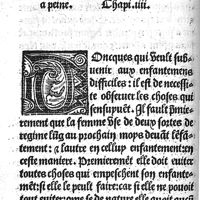 a peine. Chapi. iiii.
Oncques qui veult sub-
uenir aux enfantemens
difficiles: il est de necessi-
te obseruer les choses qui
sensuyuẽt. Il fault ṗmie-
rement que la femme vse de deux sortes de
regime lũg au prochain moys deuãt lẽfã-
temẽt: ⁊ lautre en celluy enfantement: en
ceste maniere. Premieremẽt elle doit euiter
toutes choses qui empeschent son enfante-
mẽt: si elle le peult faire: car si elle ne pouoit